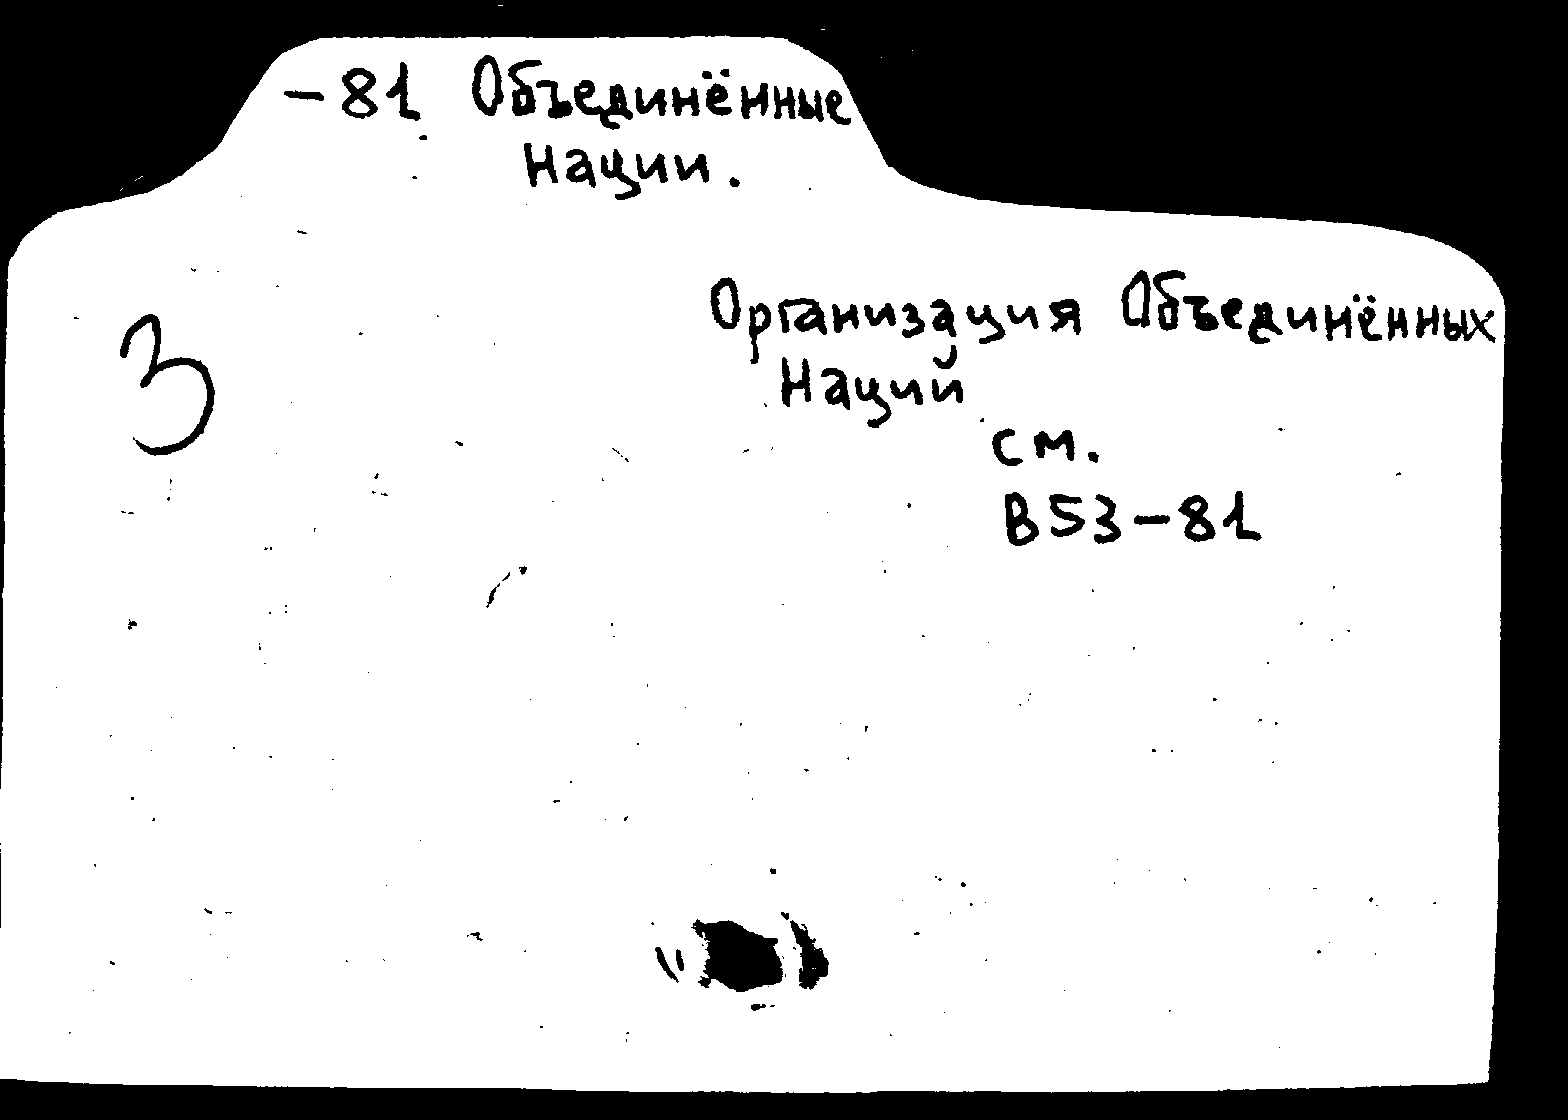 -81 Объединённые
Нации.
Организация Объединённых
Наций
3
см.
В53-81